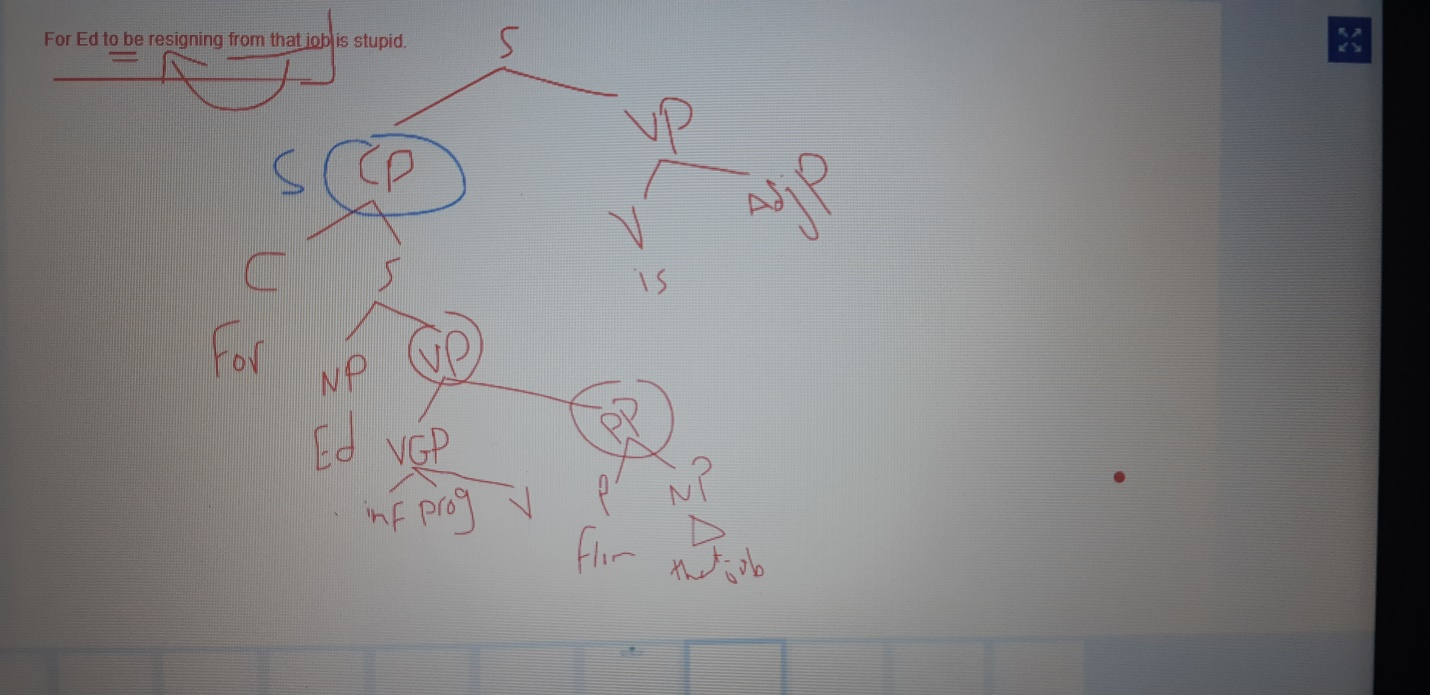 For Ed to be resigning from that job is stupid.
S
VP
S CP
V AdjP
C S
is
For NP VP
PP
Ed VGP
P NP
inf prog V
that job